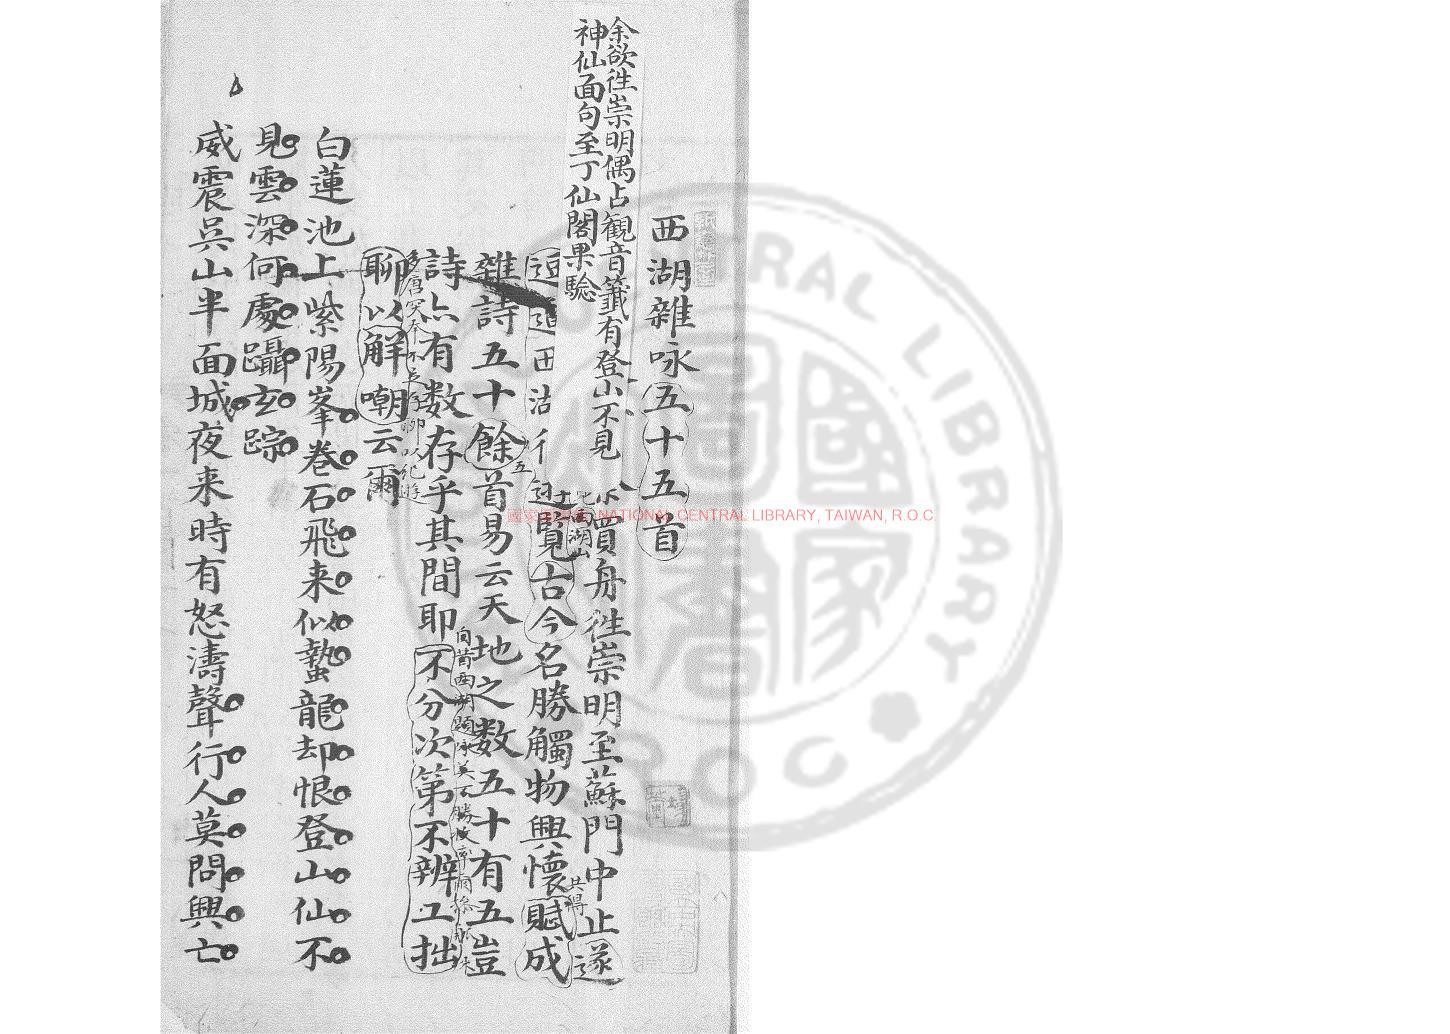 西湖雜咏五十五首
余欲徃崇明偶占觀音籤有登山不見
神仙面句至丁仙閣果驗
買舟徃崇明至蘇門中止遂
覽古今名勝觸物興懷賦成
共得
雜詩五十餘首易云天地之数五十有五豈
五
詩亦有数存乎其間耶不分次第不辨工拙
聊以解嘲云爾
白蓮池上紫陽峯卷石飛来似蟄龍却恨登山仙不
見雲深何處躡玄踪
威震吳山半面城夜来時有怒濤聲行人莫問興亡
國家圖書館 NATIONAL CENTRAL LIBRARY, TAIWAN, R.O.C.
CENTRAL LIBRARY
R.O.C.
國家圖書